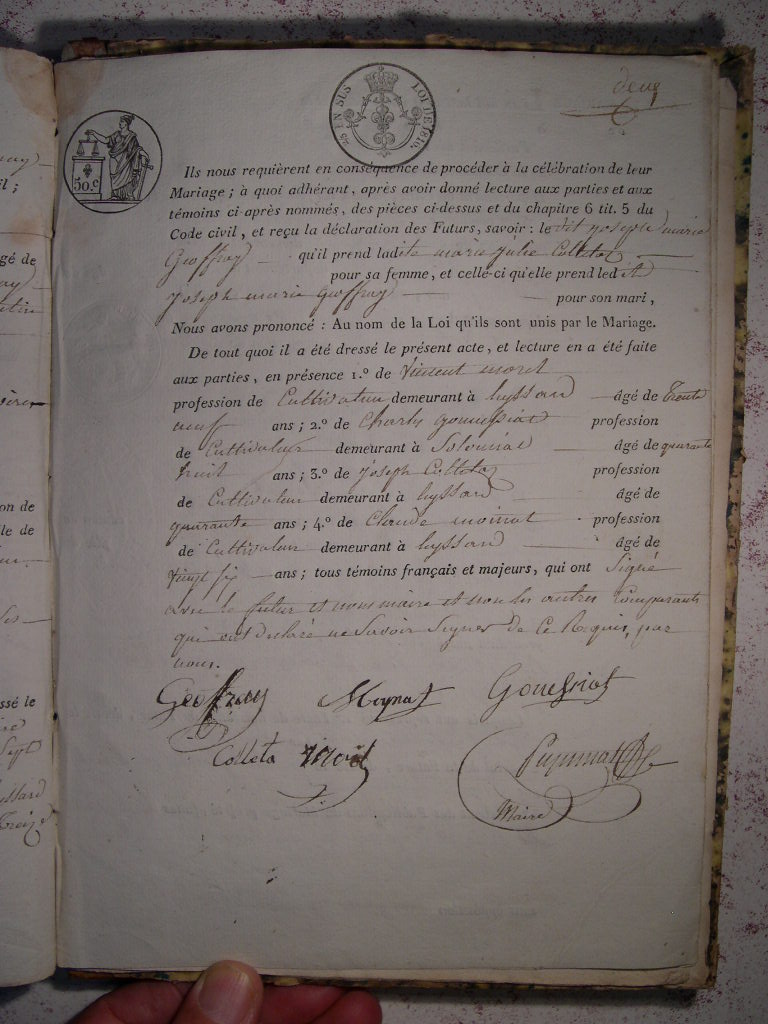 deux
EN SUS LOI DE 1816.
50.c
Ils nous requièrent en conséquence de procéder à la célébration de leur
Mariage ; à quoi adhérant, après avoir donné lecture aux parties et aux
témoins ci-après nommés, des pièces ci-dessus et du chapitre 6 tit. 5 du
Code civil, et reçu la déclaration des Futurs, savoir : le dit joseph marie
Geoffray qu'il prend ladite marie julie Colleta
pour sa femme, et celle-ci qu'elle prend ledit
Joseph marie Geoffray pour son mari,
Nous avons prononcé : Au nom de la Loi qu'ils sont unis par le Mariage.
De tout quoi il a été dressé le présent acte, et lecture en a été faite
aux parties, en présence 1.º de Vincent morel
profession de Cultivateur demeurant à hyssard âgé de trente
neuf ans ; 2.º de Charles profession
de Cultivateur demeurant à Solomiat âgé de quarante
huit ans ; 3.º de Joseph Colleta profession
de Cultivateur demeurant à hyssard âgé de
quarante ans ; 4.º de Claude moinat profession
de Cultivateur demeurant à hyssard âgé de
vingt six ans ; tous témoins français et majeurs, qui ont signé
avec le futur et nous maire et non les autres Comparants
qui ont déclaré ne Savoir Signer de Ce Requis, par
nous.
Geoffray Moynat
Colleta Morel
Maire